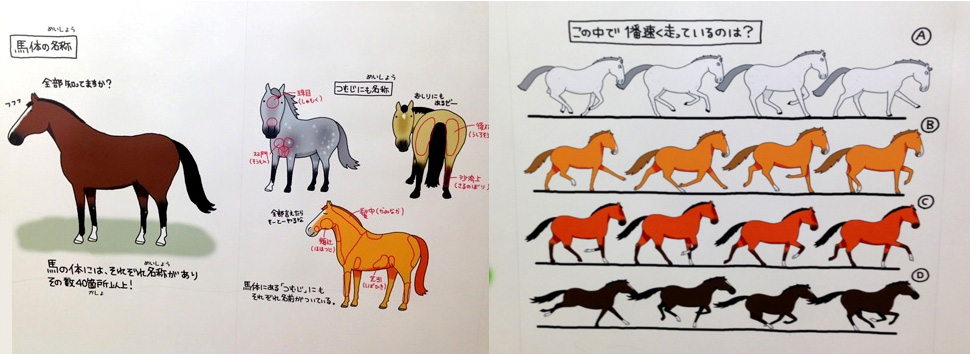 めいしょう
馬体の名称
全部知ってますか?
フフフ
めいしょう
馬の体には、それぞれ名称があり
その数40箇所以上!
かしょ
めいしょう
つむじにも名称
珠目
(しゅもく)
(そうもん)
おしりにも
あるどー
沙流上
(さるのぼり)
全部言えたら
髪中(かみなか)
(ほほつじ)
芝引
(しばひき)
馬体にある「つむじ」にも
それぞれ名前がついている。
この中で1番速く走っているのは?
A
B
C
D